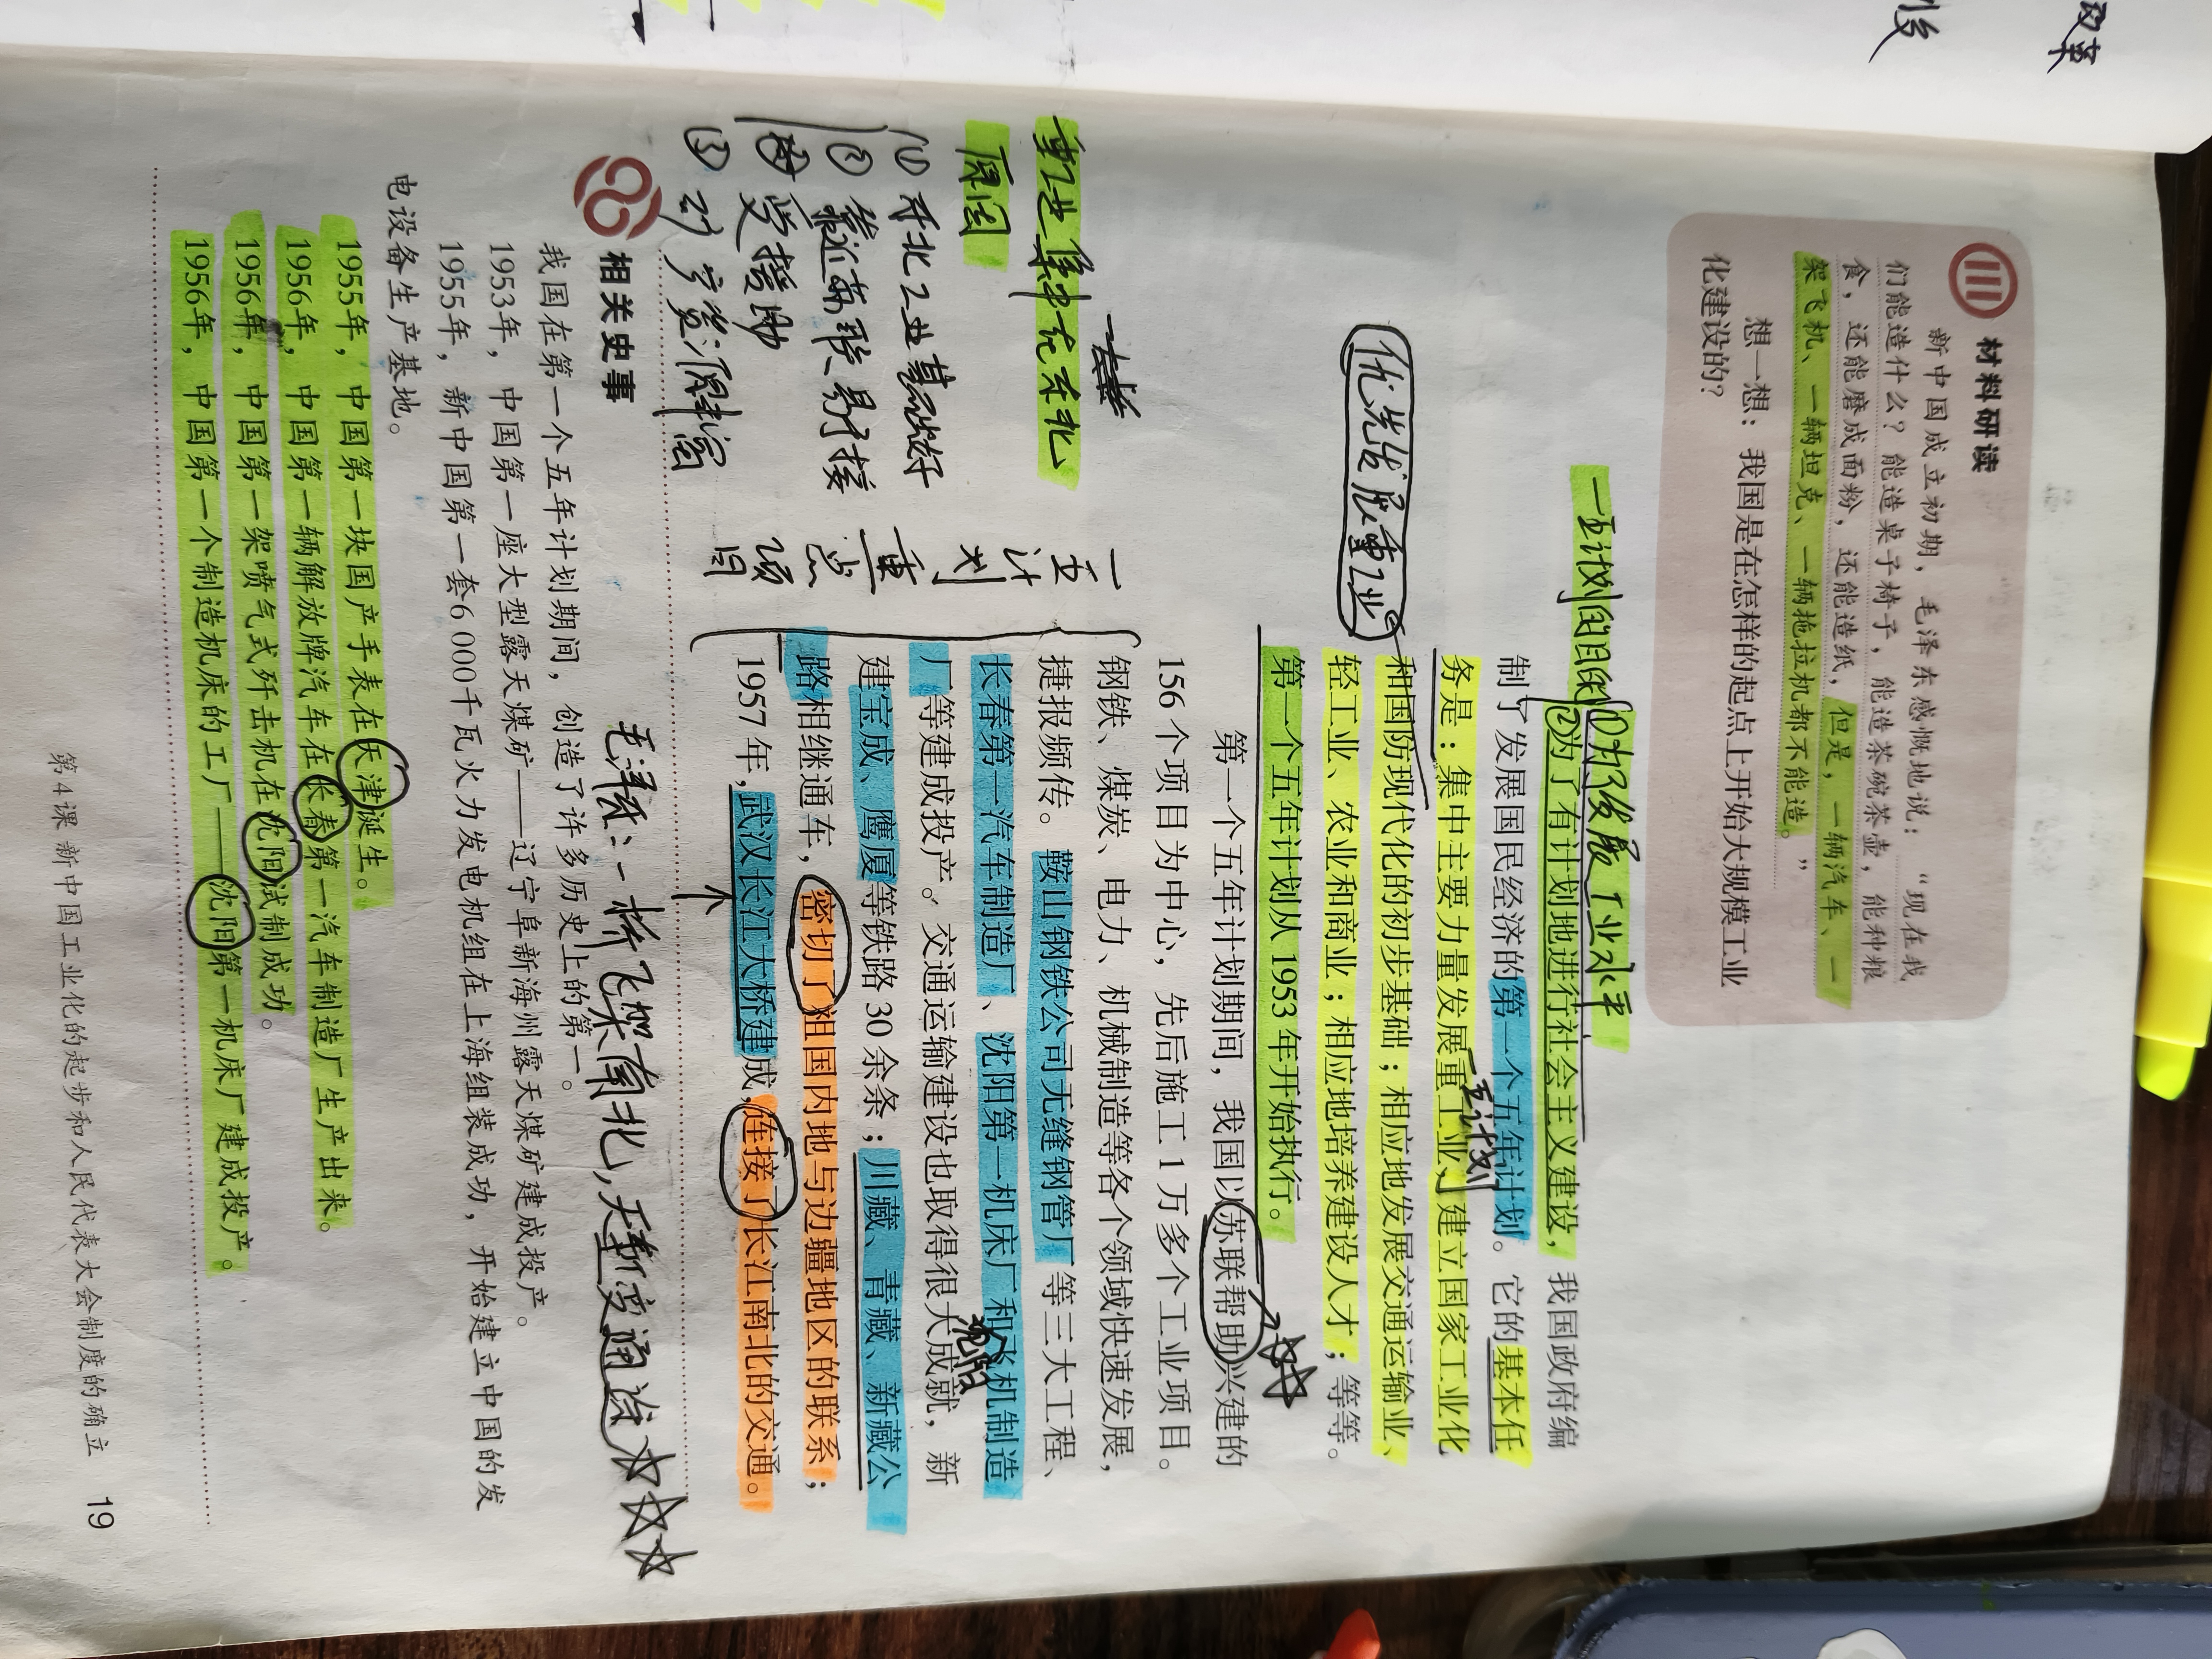 材料研读
新中国成立初期，毛泽东感慨地说：“现在我
们能造什么？能造桌子椅子，能造茶碗茶壶，能种粮
食，还能磨成面粉，还能造纸，但是，一辆汽车、一
架飞机、一辆坦克、一辆拖拉机都不能造。”
想一想：我国是在怎样的起点上开始大规模工业
化建设的？
一五计划的目的
①为了发展工业水平
②为了有计划地进行社会主义建设，我国政府编
制了发展国民经济的第一个五年计划。它的基本任
务是：集中主要力量发展重工业，建立国家工业化
一五计划
和国防现代化的初步基础；相应地发展交通运输业、
轻工业、农业和商业；相应地培养建设人才；等等。
第一个五年计划从1953年开始执行。
优先发展重工业
第一个五年计划期间，我国以苏联帮助兴建的
156个项目为中心，先后施工1万多个工业项目。
钢铁、煤炭、电力、机械制造等各个领域快速发展，
捷报频传。鞍山钢铁公司无缝钢管厂等三大工程、
长春第一汽车制造厂、沈阳第一机床厂和飞机制造
沈阳
厂等建成投产。交通运输建设也取得很大成就，新
建宝成、鹰厦等铁路30余条；川藏、青藏、新藏公
路相继通车，密切了祖国内地与边疆地区的联系；
1957年，武汉长江大桥建成，连接了长江南北的交通。
一五
计
划
重
点
项
目
重工业集中在东北
原因
① 东北工业基础好
② 靠近苏联，易于接
受援助
③ 矿产资源丰富
毛泽东：一桥飞架南北，天堑变通途
相关史事
我国在第一个五年计划期间，创造了许多历史上的第一。
1953年，中国第一座大型露天煤矿——辽宁阜新海州露天煤矿建成投产。
1955年，新中国第一套6 000千瓦火力发电机组在上海组装成功，开始建立中国的发
电设备生产基地。
1955年，中国第一块国产手表在天津诞生。
1956年，中国第一辆解放牌汽车在长春第一汽车制造厂生产出来。
1956年，中国第一架喷气式歼击机在沈阳试制成功。
1956年，中国第一个制造机床的工厂——沈阳第一机床厂建成投产。
第4课 新中国工业化的起步和人民代表大会制度的确立 19